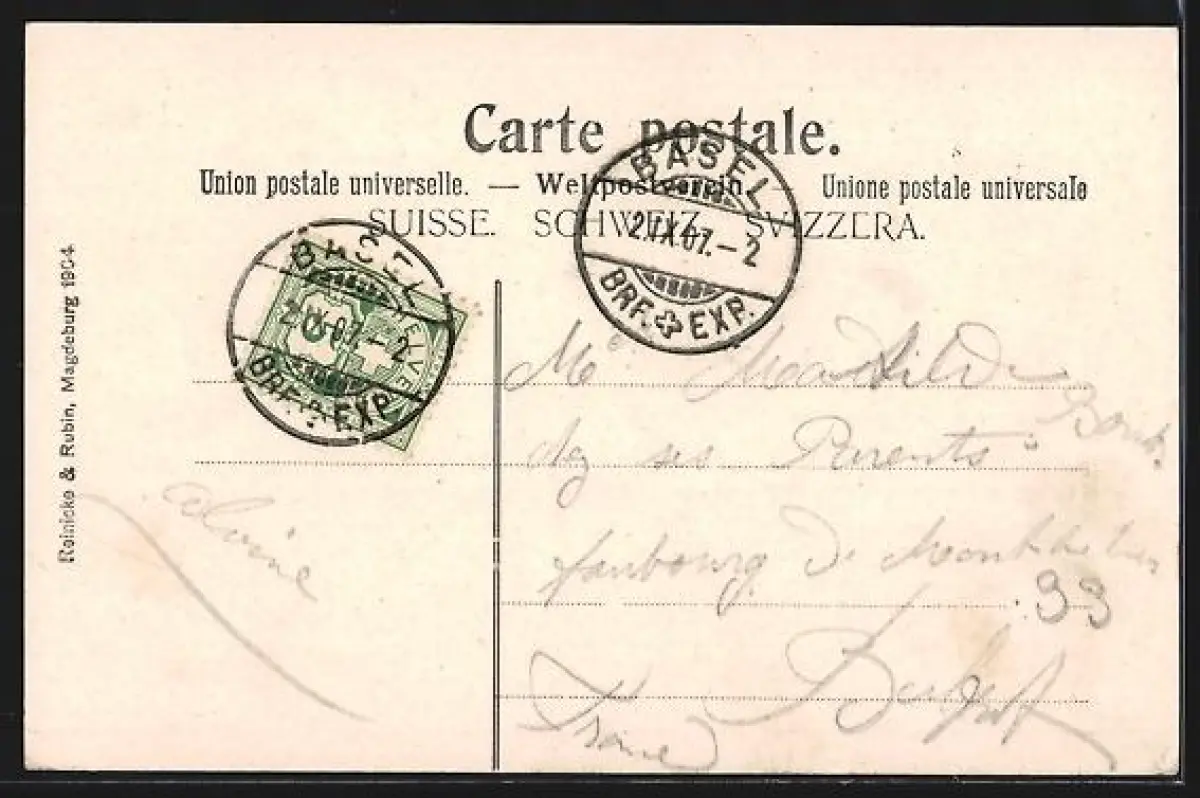 Carte postale.
Union postale universelle. — Weltpostverein — Unione postale universale
SUISSE. SCHWEIZ. SVIZZERA.
BASEL
2.IX.07.–2
BRF. EXP.
BASEL
2.IX.07.–2
BRF. EXP.
HELVE
5
Reinicke & Rubin, Magdeburg 1904
Mathilde
chez ses Parents
faubourg de
33
Belfort
France